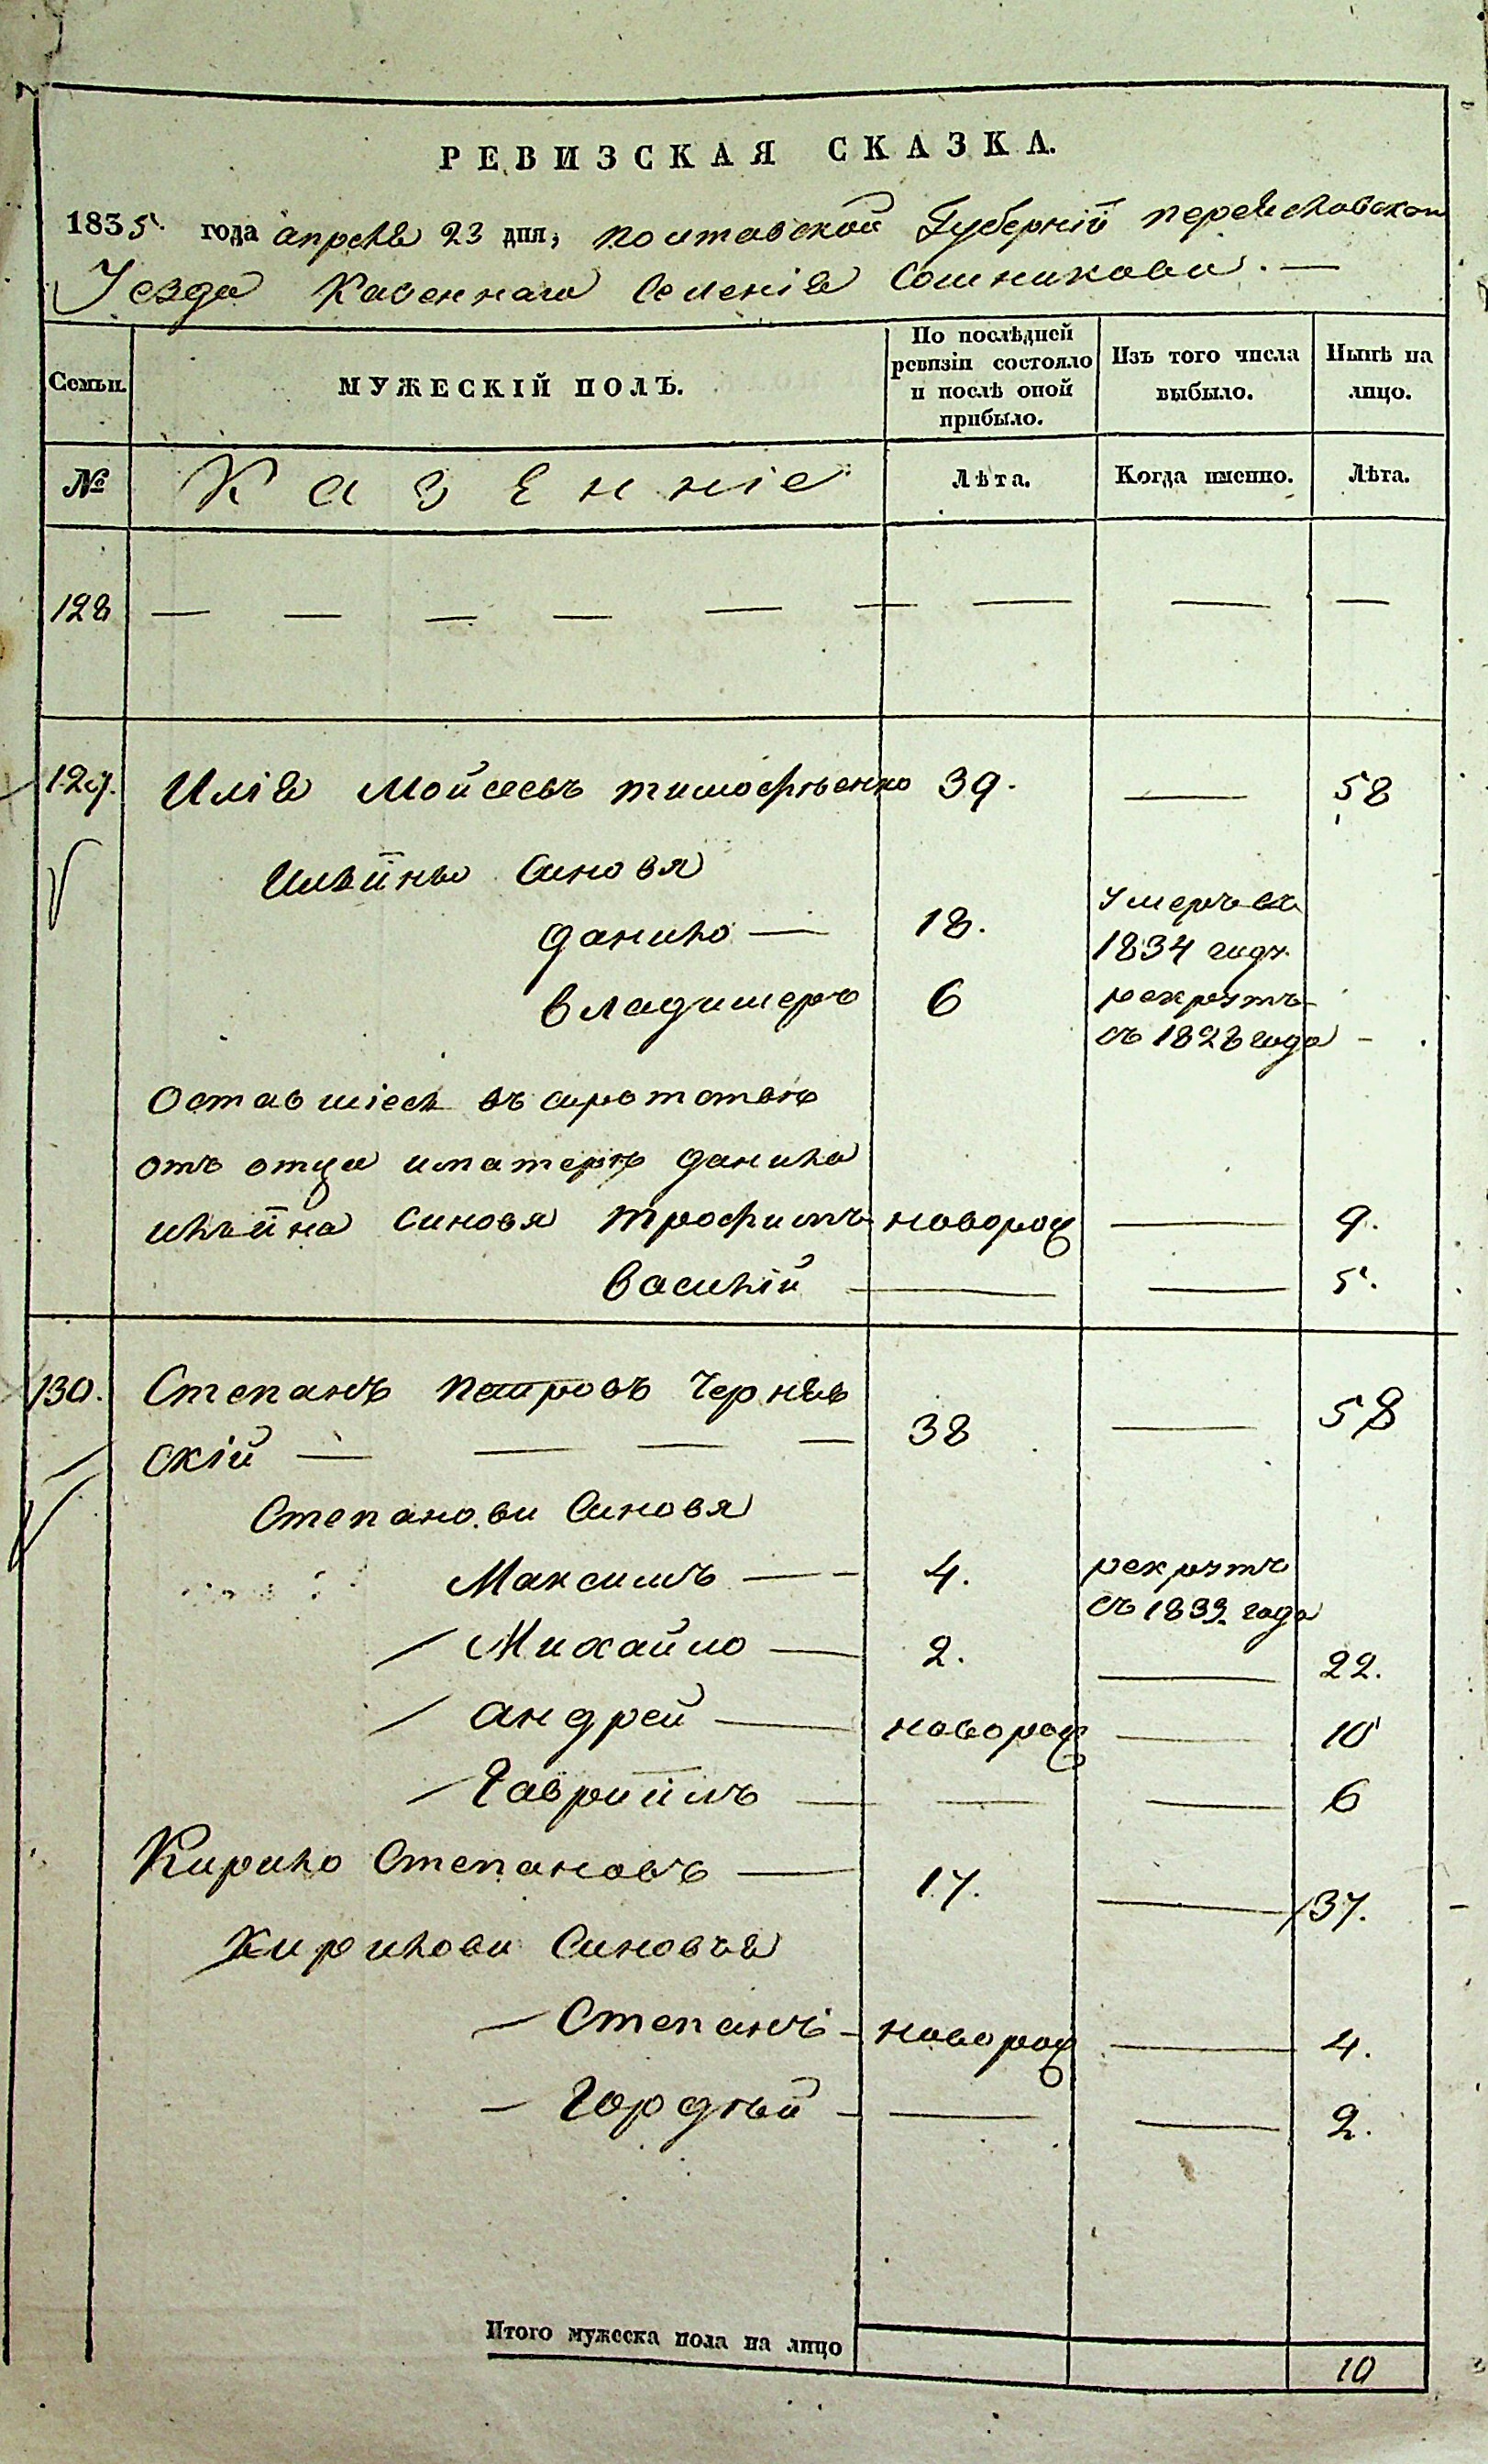 РЕВИЗСКАЯ СКАЗКА.
1835. года апреля 23 дня, полтавской Губерніи переяславскаго
Уезда Казеннаго Селенія Сошникова. —
Семьи. МУЖЕСКІЙ ПОЛЪ. По послѣдней ревизіи состояло и послѣ оной прибыло. Изъ того числа выбыло. Нынѣ на лицо.
№ Казенніе Лѣта. Когда именно. Лѣта.
128 — — — — — — — — —
129. Илія Мойсеевъ тимофѣенко 39. — 58
Ильйны Синовя
данило — 18. умеръ въ 1834 году.
владимеръ 6 рекрутъ съ 1828 года
Оставшіеся въ сиротствѣ
отъ отца и матерѣ данила
ильйна Синовя трофимъ новорож — 9.
василій — — 5.
130. Степанъ петровъ Черняв
скій — — — — 38 — 58
Степанови Синовя
Максимъ — 4. рекрутъ съ 1832 года
Михайло — 2. — 22.
андрей — новорож — 10
Гавриілъ — — — 6
Кирило Степановъ — 17. — 37.
Кирилови Синовья
Степанъ - новорож — 4.
Гордѣй - — — 2.
Итого мужеска пола на лицо 10